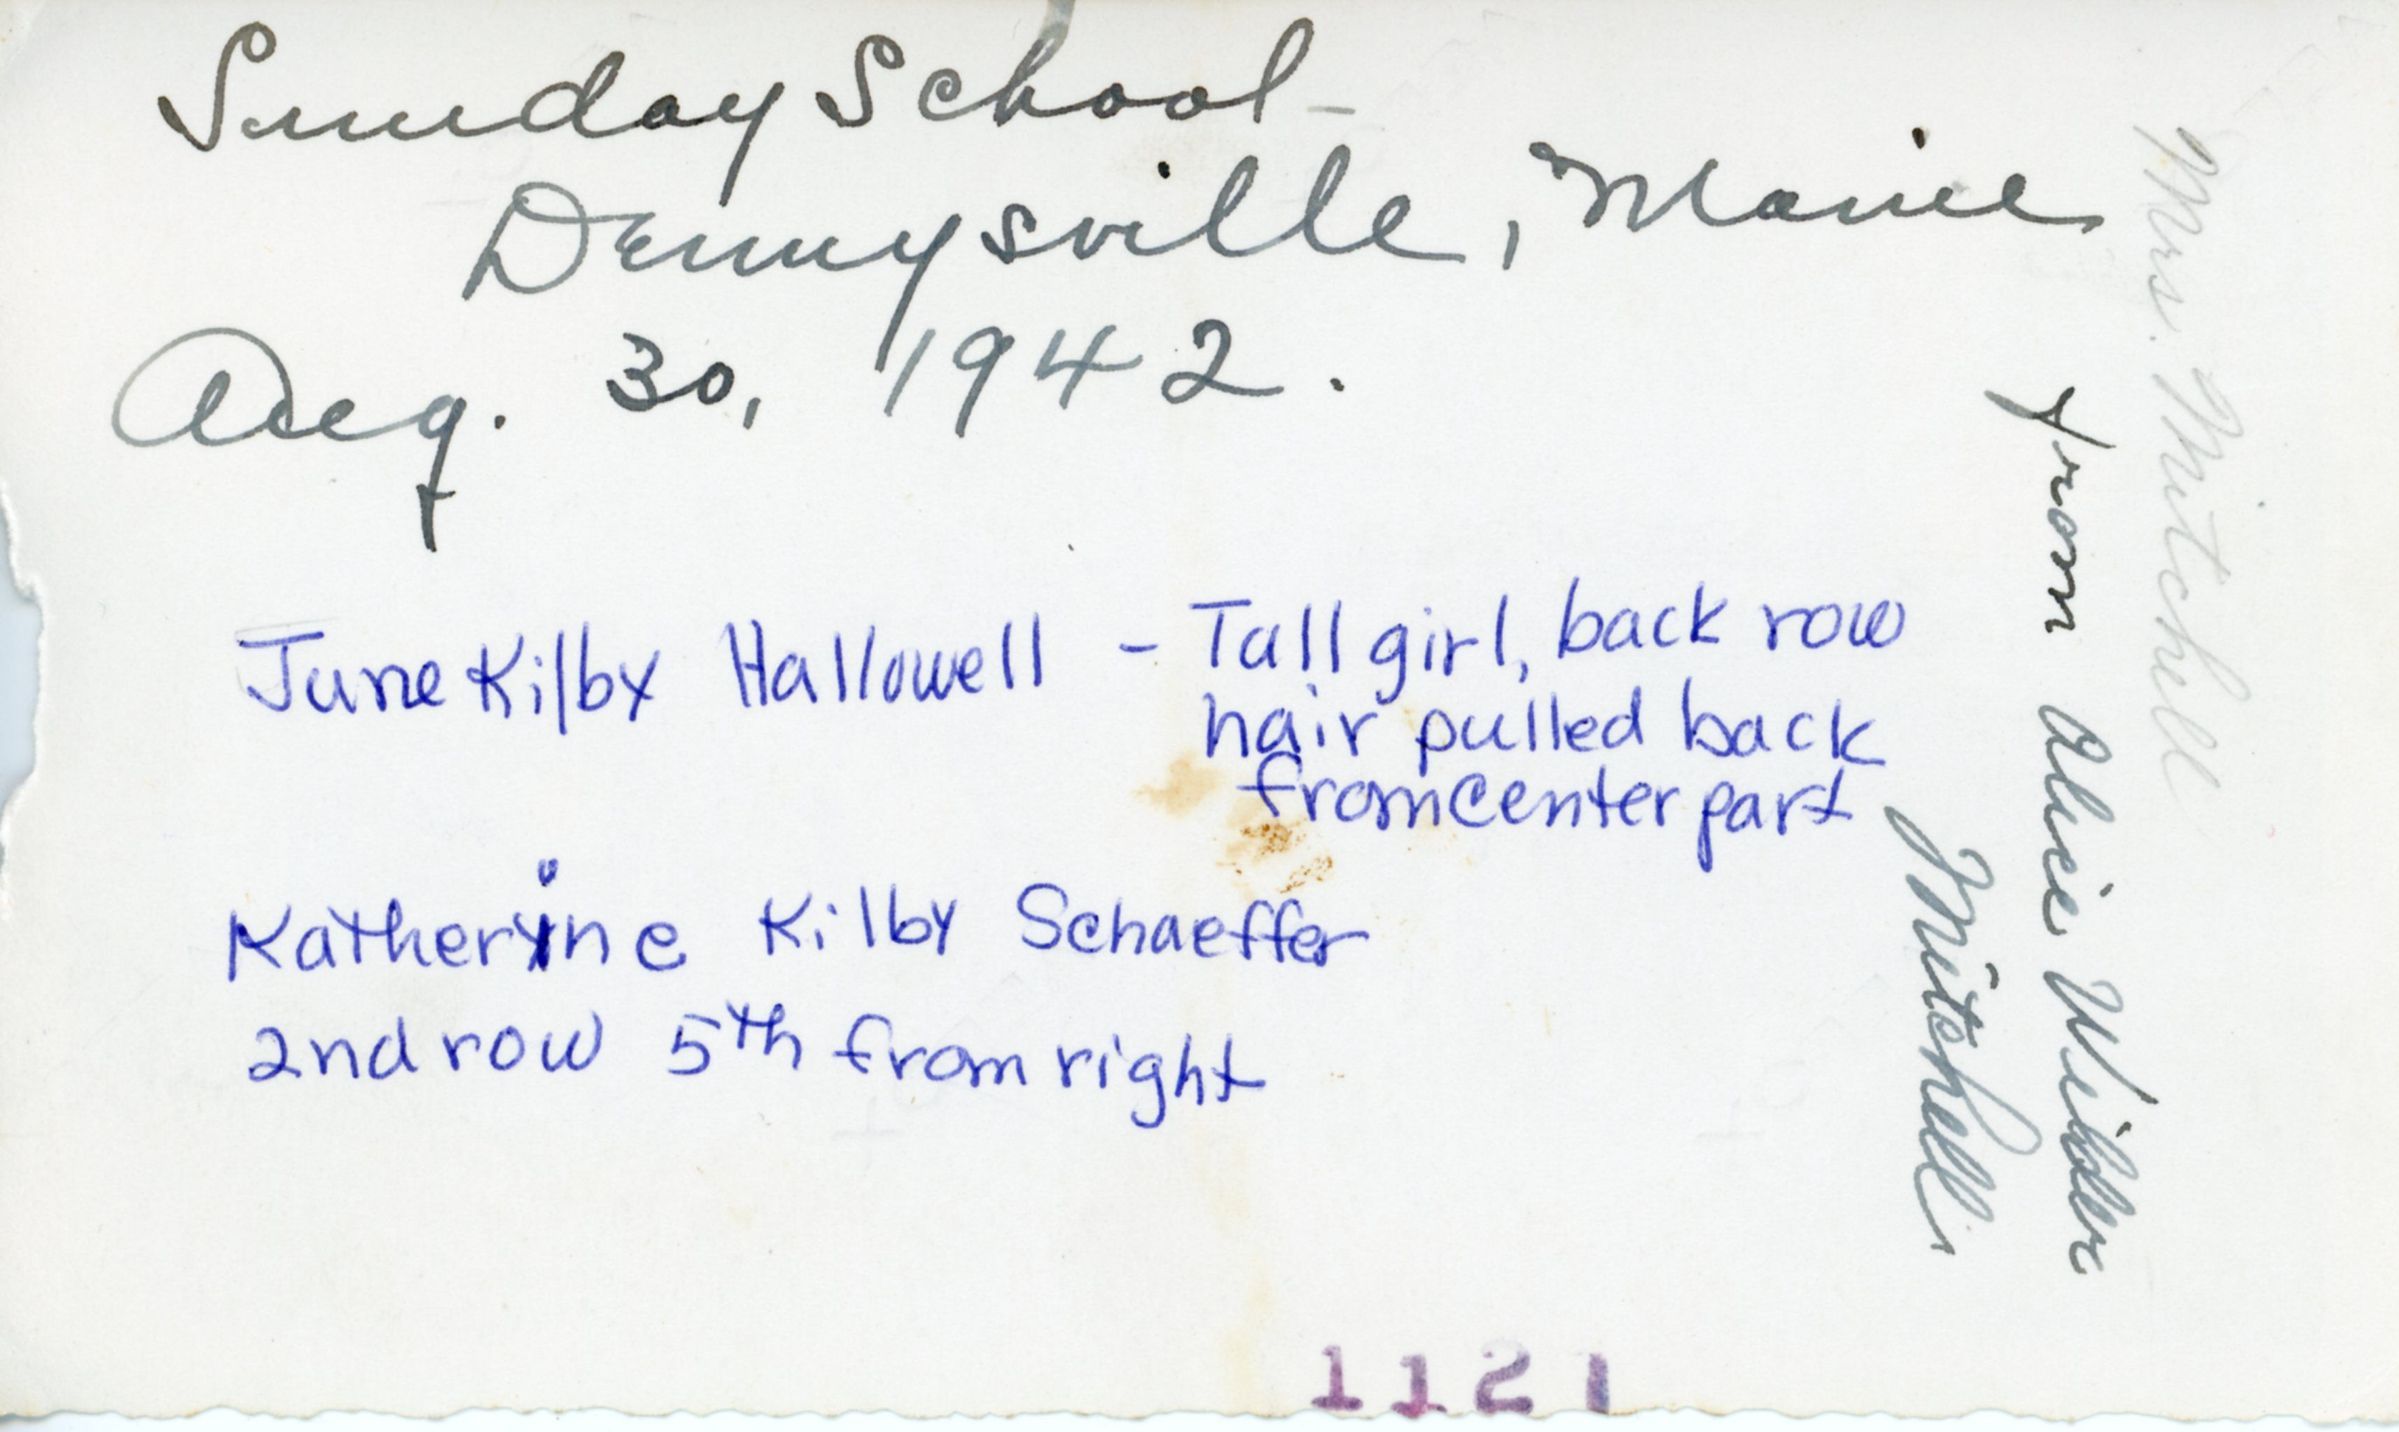 Sunday School -
Dennysville, Maine
Aug. 30, 1942.
June Kilby Hallowell - Tall girl, back row
hair pulled back
from center part
Katherine Kilby Schaeffer
2nd row 5th from right
Mrs. Mitchell
from Alice Wilder
Mitchell
1121